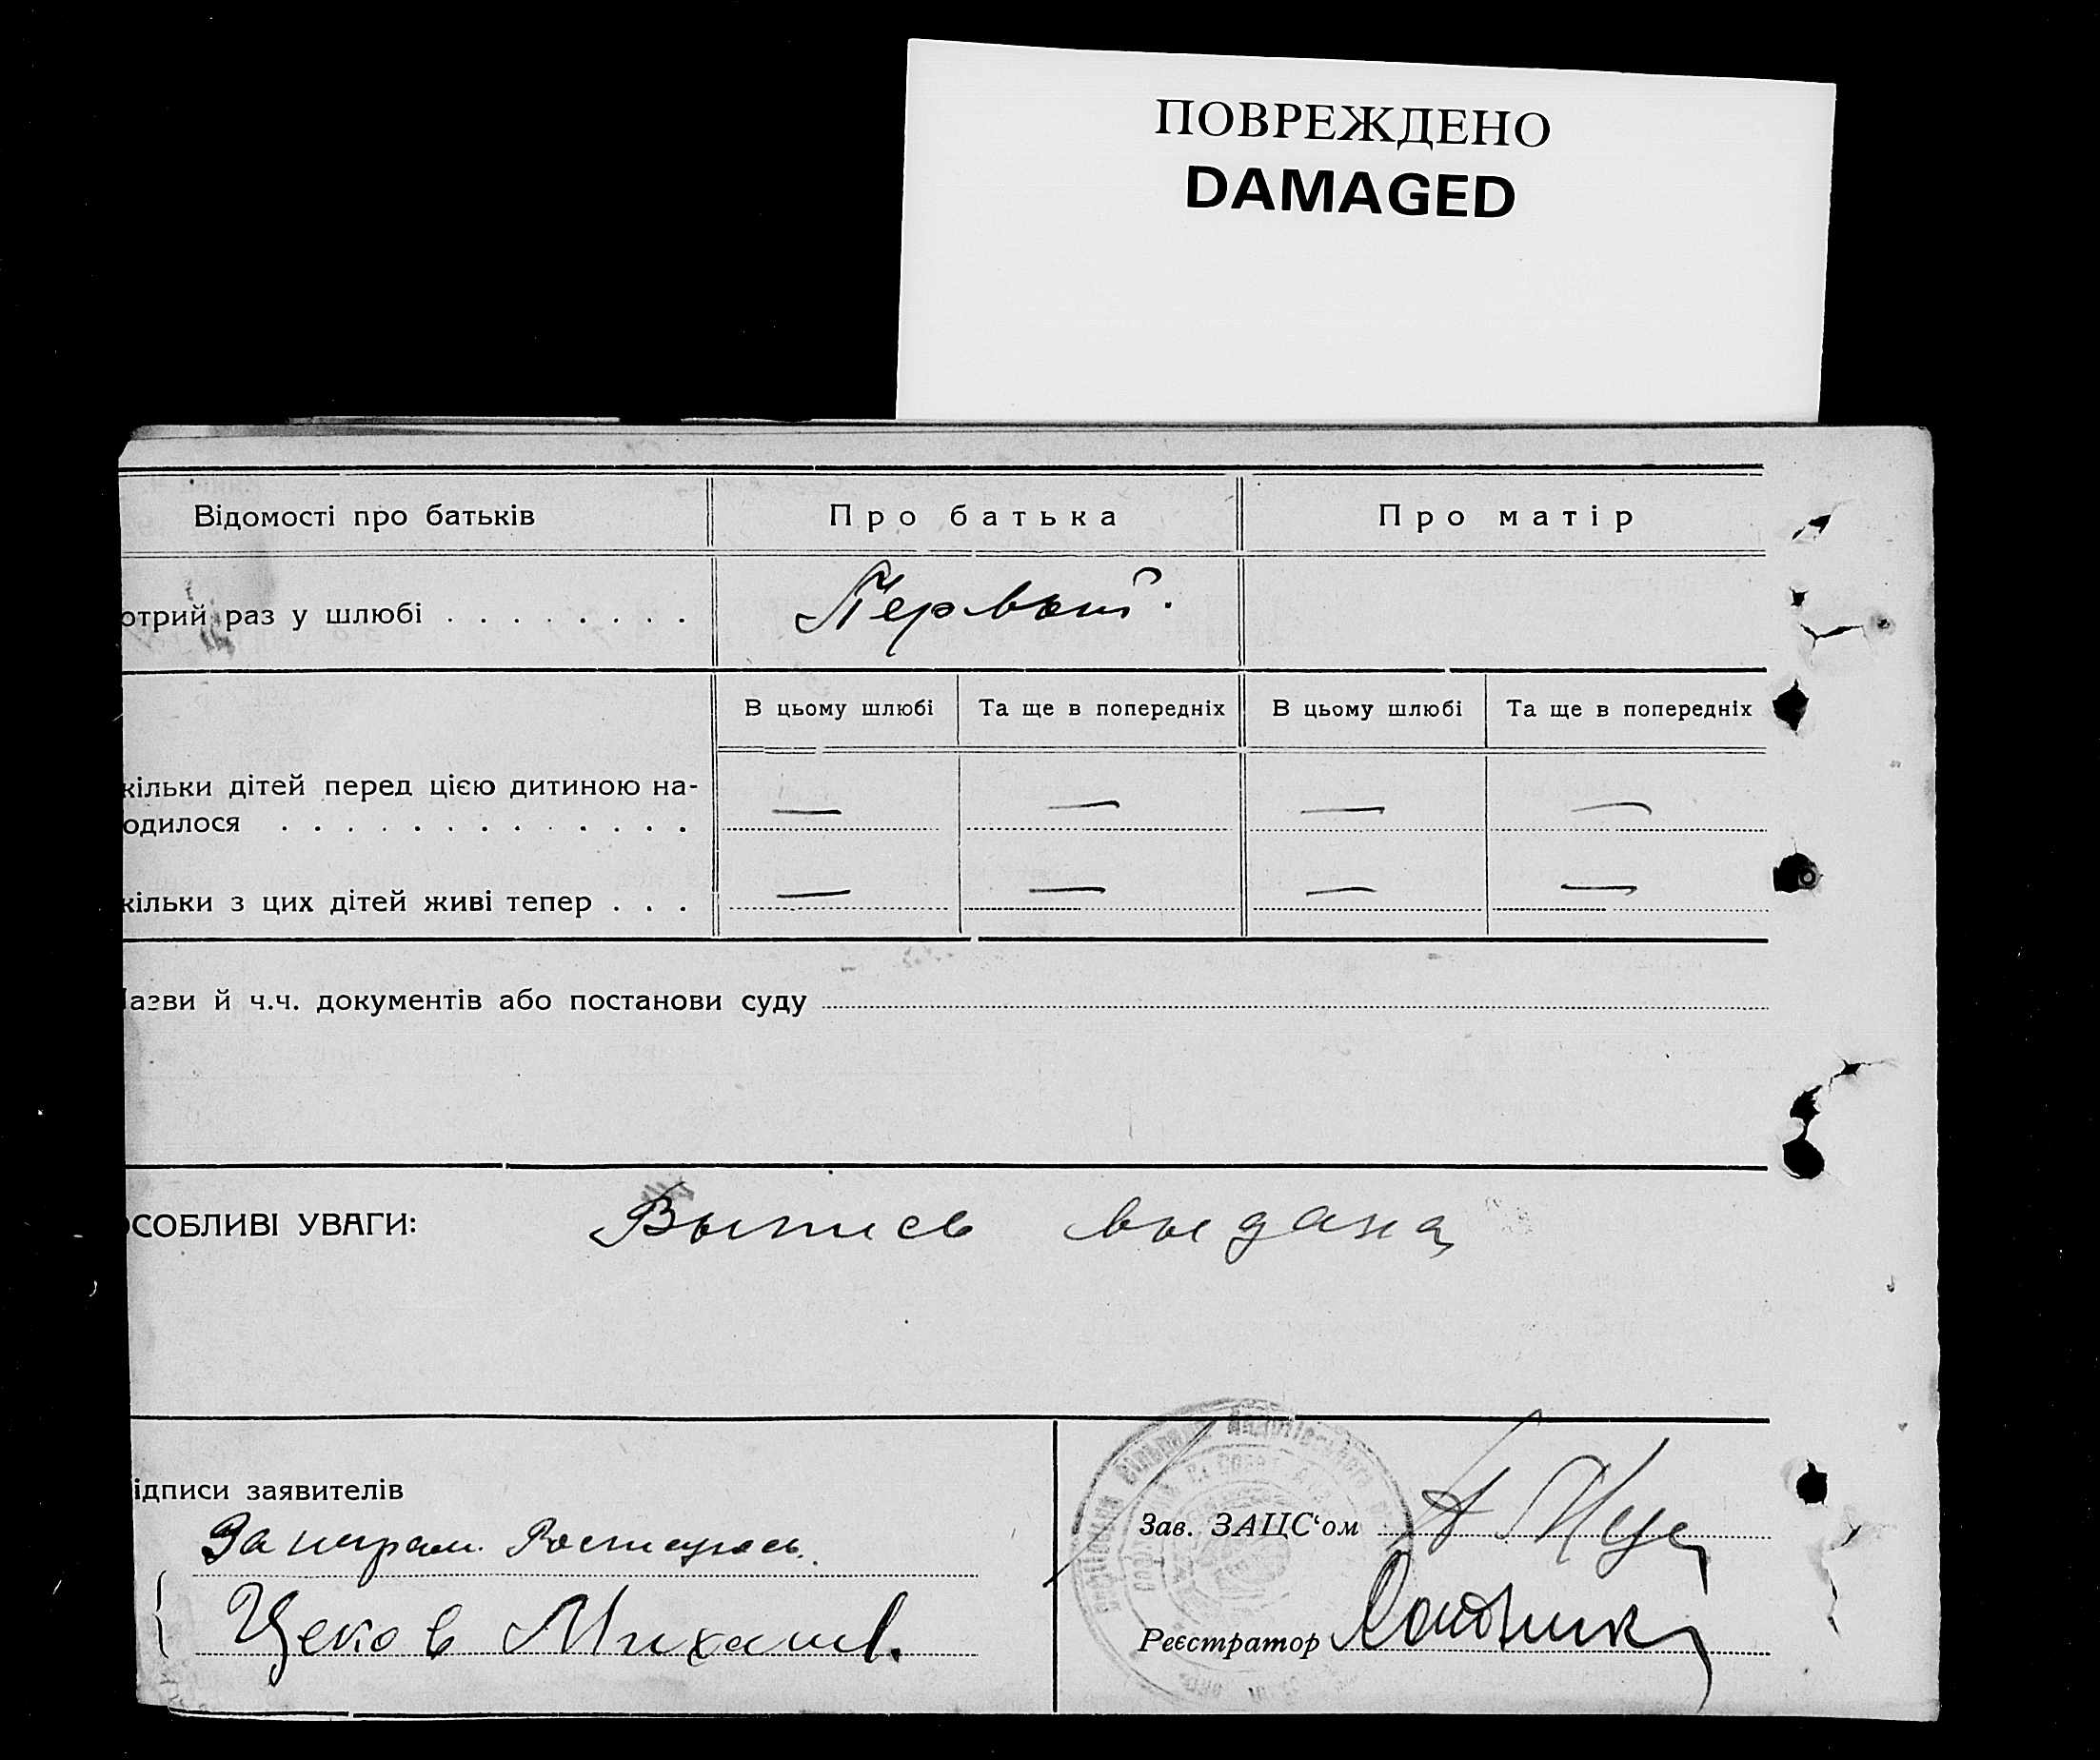 ПОВРЕЖДЕНО
DAMAGED
Відомості про батьків
Про батька
Про матір
отрий раз у шлюбі . . . . . . . .
Первый.
В цьому шлюбі
Та ще в попередніх
В цьому шлюбі
Та ще в попередніх
кільки дітей перед цією дитиною на-
одилося . . . . . . . . . . . . .
— — — —
кільки з цих дітей живі тепер . . .
— — — —
азви й ч.ч. документів або постанови суду
СОБЛИВІ УВАГИ:
Выпись выдана
ідписи заявителів
За неграм. Роспишусь.
Цеков Михаил.
Зав. ЗАЦС‘ом
Реєстратор